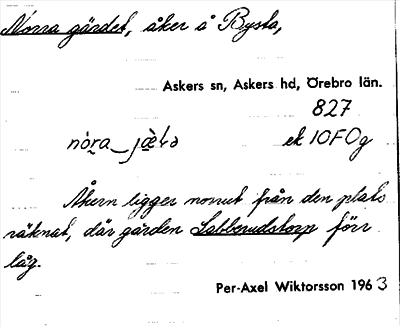 Norra gärdet, åker å Bysta,
Askers sn, Askers hd, Örebro län.
827
ek 10F0g
Åkern ligger norrut från den plats
räknat, där gården Labberudstorp förr
låg.
Per-Axel Wiktorsson 1963